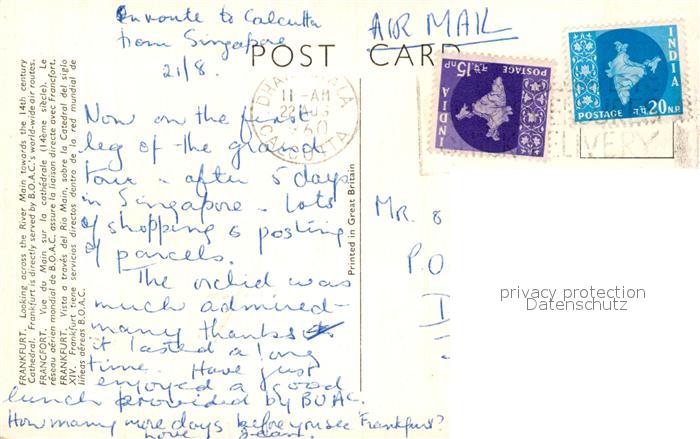 En route to Calcutta
from Singapore
21/8.
AIR MAIL
POST CARD
Now on the first
leg of the grand
tour - after 5 days
in Singapore - lots
of shopping & posting
of parcels.
The orchid was
much admired -
many thanks
it lasted a long
time. Have just
enjoyed a good
lunch provided by BOAC.
How many more days before you see "Frankfurt"?
love
MR. &
P.O
Printed in Great Britain
FRANKFURT, Looking across the River Main towards the 14th century
Cathedral. Frankfurt is directly served by B.O.A.C.'s world-wide air routes.
FRANCFORT, Vue du Main sur la cathédrale (14ème siècle). Le
réseau aérien mondial de B.O.A.C. assure la liaison directe avec Francfort.
FRANKFURT, Vista a través del Río Main, sobre la Catedral del siglo
XIV. Frankfurt tiene servicios directos dentro de la red mundial de
líneas aéreas B.O.A.C.
11-AM
CALCUTTA
INDIA
POSTAGE
न.पै. 15 NP
INDIA
POSTAGE न.पै. 20 NP
privacy protection
Datenschutz